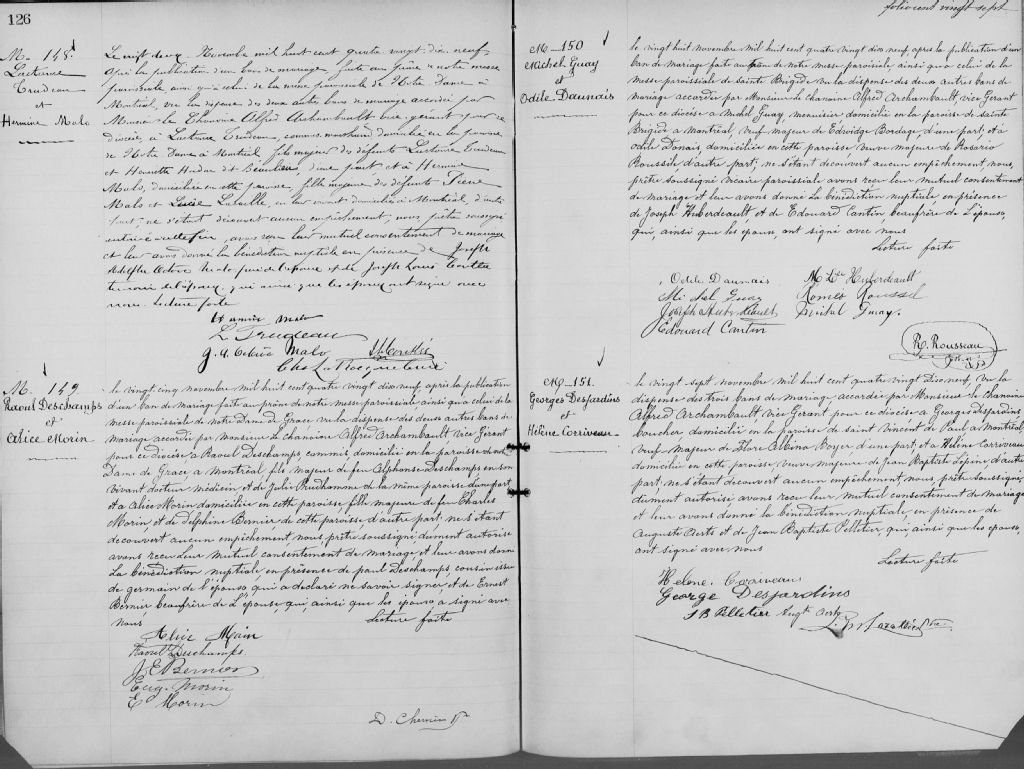 126
M. 148.
Lactance
Trudeau
et
Hermine Malo
Le vingt deux Novembre mil huit cent quatre vingt-dix neuf,
après la publication d'un ban de mariage, faite au prône de notre messe
paroissiale ainsi qu'à celui de la messe paroissiale de Notre Dame à
Montréal, vu la dispense des deux autres bans de mariage accordée par
Monsieur le Chanoine Alfred Archambault vice-gérant pour ce
diocèse, à Lactance Trudeau, commis-marchand domicilié en la paroisse
de Notre Dame à Montréal, fils majeur des défunts Lactance Trudeau
et Henriette Hudon dit Beaulieu, d'une part, et à Hermine
Malo, domiciliée en cette paroisse, fille majeure des défunts Pierre
Malo et Louise Lataille, en leur vivant domiciliés à Montréal, d'autre
part, ne s'étant découvert aucun empêchement, nous, prêtre soussigné
autorisé, avons reçu leur mutuel consentement de mariage
et leur avons donné la bénédiction nuptiale en présence de Joseph
Adolphe Octave Malo frère de l'épouse et de Joseph Louis
témoin de l'époux, qui ainsi que les époux ont signé avec
nous. Lecture faite
Hermine Malo
L. Trudeau
J. A. Octave Malo
Chs LaRocque curé
M. 149
Raoul Deschamps
et
Alice Morin
le vingt cinq novembre mil huit cent quatre vingt dix neuf, après la publication
d'un ban de mariage faite au prône de notre messe paroissiale ainsi qu'à celui de la
messe paroissiale de notre Dame de Grace vu la dispense des deux autres bans de
mariage accordé par Monsieur de chanoine Alfred Archambault vice Gérant
pour ce diocèse à Raoul Deschamps, commis, domicilié en la paroisse de notre
Dame de Grace, à Montréal fils majeur de feu Alphonse Deschamps en son
vivant docteur médecin et de Julie Prudhomme de la même paroisse d'une part,
et à Alice Morin domiciliée en cette paroisse, fille majeure de feu Charles
Morin, et de Delphine Bernier de cette paroisse d'autre part, ne s'étant
decouvert aucun empêchement nous, prêtre soussigné dument autorisé
avons reçu leur mutuel consentement de mariage, et leur avons donné
la bénédiction nuptiale, en présence de paul Deschamps, cousin issu
de germain de l'époux, qui a declaré ne savoir signer, et de Ernest
Bernier, beaufrère de L'épouse, qui, ainsi que les epoux a signé avec
nous Lecture faite
Alice Morin
Raoul Deschamps
J E Bernier
Eug. Morin
E Morin
D. Chemin ptre
folio cent vingt sept
M_150
Michel Guay
et
Odile Daunais
le vingt huit novembre mil huit cent quatre vingt dix neuf après la publication d'un
ban de mariage fait au prône de notre messe paroissiale, ainsi qu'à celui de la
messe paroissiale de Sainte Brigide vu la dispense des deux autres bans de
mariage accorder par Monsieur le chanoine Alfred Archambault, vice Gerant
pour ce diocèse à Michel Guay, menuisier domicilié en la paroisse de sainte
Brigide à Montréal, veuf majeur de Edwidge Bordage, d'une part, et à
Odile Donais, domiciliée en cette paroisse veuve majeure de Rosario
Roussile, d'autre part; ne s'étant decouvert aucun empêchement, nous,
prêtre soussigné vicaire paroissiale avons reçu leur mutuel consentement
de mariage et leur avons donné la bénédiction nuptiale en présence
de Joseph Huberdeault, et de Edouard Cantin, beaufrère de L'épouse,
qui, ainsi que les époux, ont signé avec nous
Lecture faite
Odile Daunais
Michel Guay
Joseph Huberdeault
Edouard Cantin
Huberdeault
Roussel
Guay.
R. Rousseau
M_151.
Georges Desjardins
et
Helene Corriveau
le vingt sept novembre mil huit cent quatre vingt Dix neuf vu la
dispense des trois bans de mariage accordée par Monsieur le Chanoine
Alfred Archambault vice Gérant pour ce diocèse à Georges Desjardins
boucher domicilié en la paroisse de saint Vincent de Paul à Montréal,
veuf majeur de Flore Albina Boyer, d'une part, et à Helène Corriveau
domiciliée en cette paroisse veuve majeure de Jean Baptiste Lépine, d'autre
part, ne s'étant decouvert aucun empêchement nous, prêtre soussigné,
dument autorisé avons recu leur mutuel consentement de mariage
et leur avons donné la bénédiction nuptiale, en présence de
Auguste Aerts et de Jean Baptiste Pelletier, qui, ainsi que les epoux,
ont signé avec nous
Lecture faite
Helene Corriveau
George Desjardins
J B Pelletier Augt Aerts